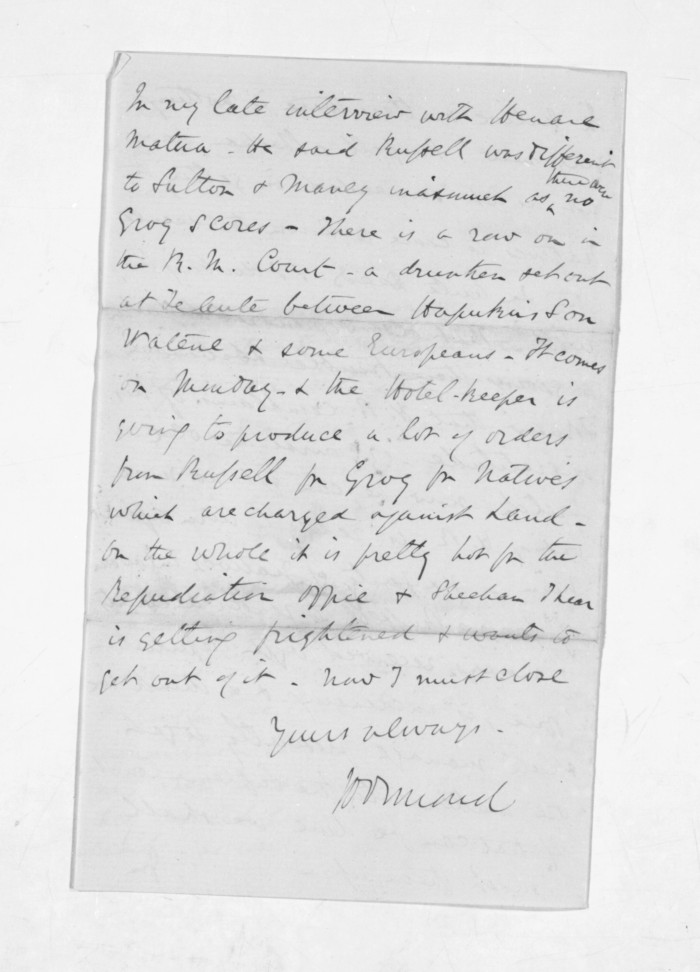 In my late interview with Henare
Matua - He said Russell was different
to Sutton & Maney inasmuch as there are no
Grog Scores - There is a row on in
the R. M. Court - a drunken set out
at Te Aute between Hapukus Son
Watene & some Europeans - It comes
on Monday - & the Hotel-keeper is
going to produce a lot of orders
from Russell for Grog for Natives
which are charged against Land -
on the whole it is pretty hot for the
Repudiation Office & Sheehan I hear
is getting frightened & wants to
get out of it - Now I must close
Yours always -
JDOrmond